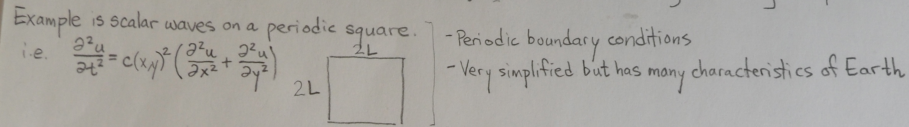 Example is scalar waves on a periodic square.
i.e. ∂²u/∂t² = c(x,y)² (∂²u/∂x² + ∂²u/∂y²)
2L
2L
- Periodic boundary conditions
- Very simplified but has many characteristics of Earth